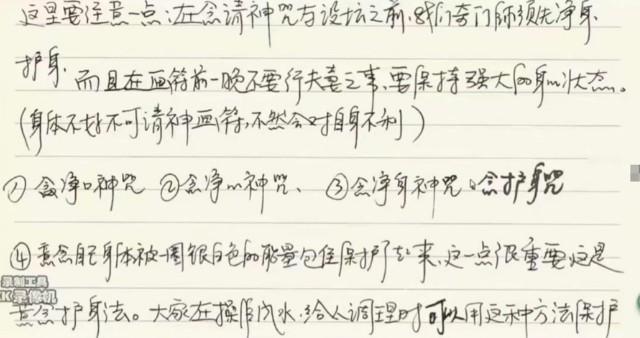 这里要注意一点:在念请神咒与设坛之前,我们奇门师须先净身
护身.而且在画符前一晚不要行夫妻之事,要保持强大的身心状态。
(身体不好不可请神画符,不然会对自身不利)
①念净口神咒 ②念净心神咒、③念净身神咒.念护身咒
④意念自己身体被一圈银白色的能量包住保护了起来,这一点很重要这是
意念护身法。大家在操作风水.给人调理时可以用这种方法保护
录制工具
KK录像机